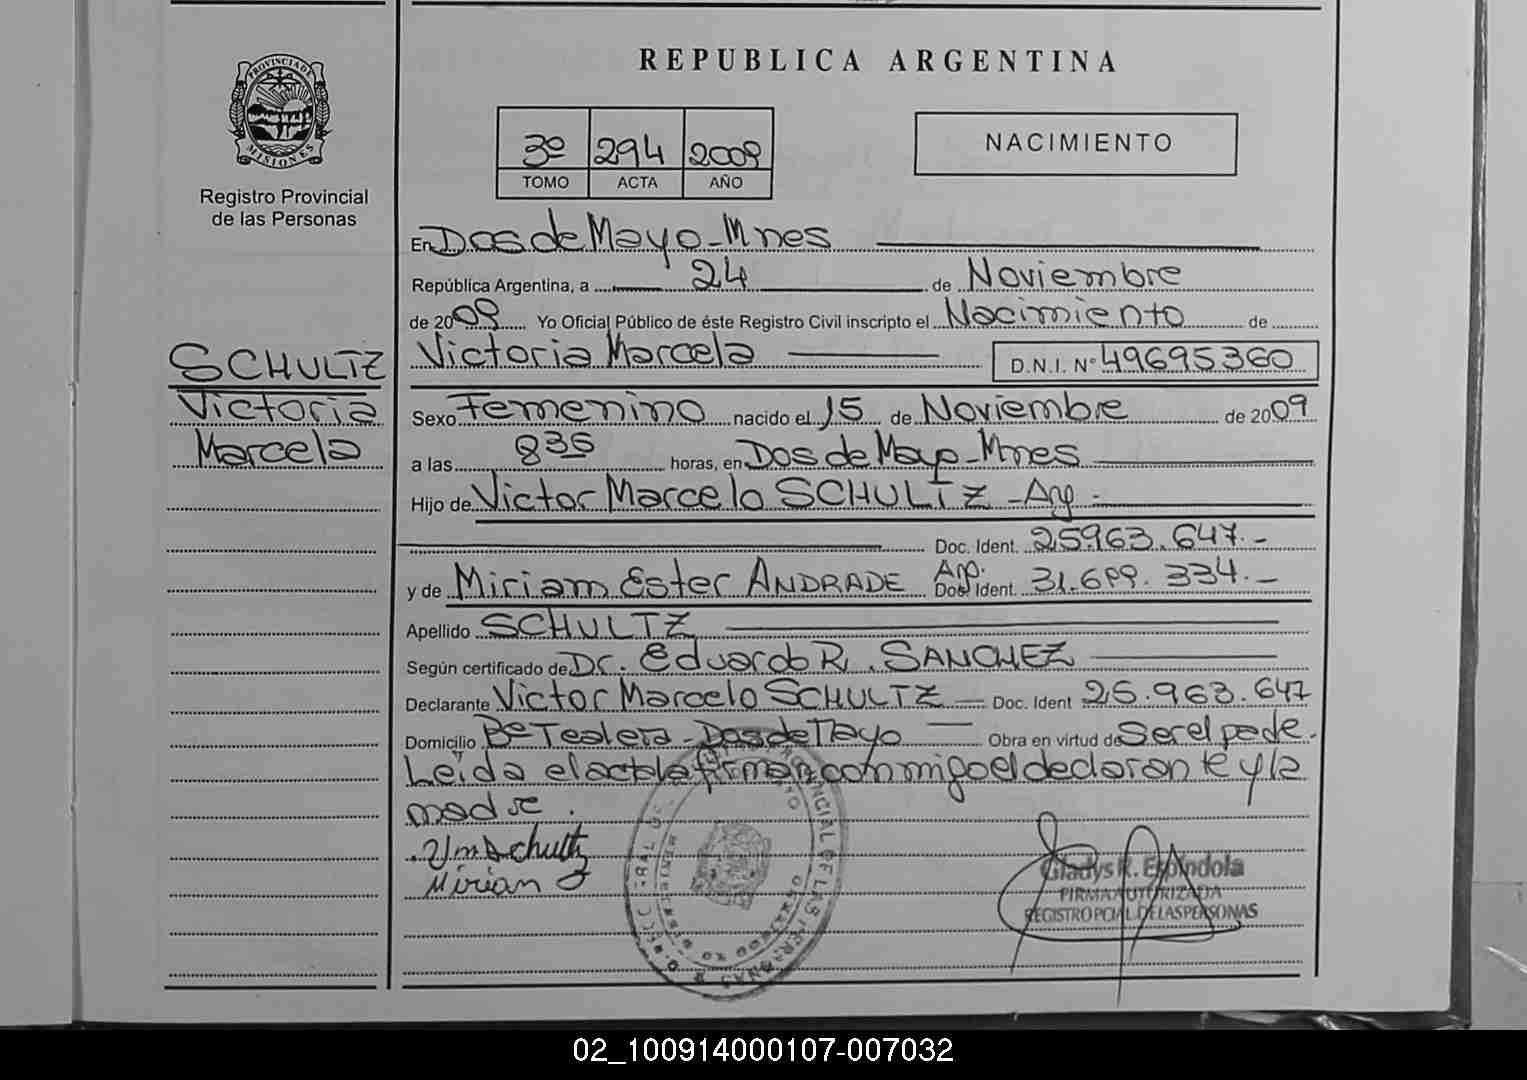 REPUBLICA ARGENTINA
PROVINCIA DE MISIONES
Registro Provincial
de las Personas
3º 294 2009
TOMO ACTA AÑO
NACIMIENTO
En Dos de Mayo-Mnes
República Argentina, a 24 de Noviembre
de 2009 Yo Oficial Público de éste Registro Civil inscripto el Nacimiento de
Victoria Marcela D.N.I. Nº 49695360
SCHULTZ
Victoria
Marcela
Sexo Femenino nacido el 15 de Noviembre de 2009
a las 8 35 horas, en Dos de Mayo-Mnes
Hijo de Victor Marcelo SCHULTZ - Arg -
Doc. Ident. 25963.647.-
y de Miriam Ester ANDRADE Arg. Doc. Ident. 31.699.334.-
Apellido SCHULTZ
Según certificado de Dr. Eduardo R. SANCHEZ
Declarante Victor Marcelo SCHULTZ - Doc. Ident 25.963.647
Domicilio Bº Tealera - Dos de Mayo - Obra en virtud de Ser el padre.
Leida el acta la firman conmigo el declarante y la
madre.
Schultz
Mirian
Gladys R. Espindola
FIRMA AUTORIZADA
REGISTRO PCIAL. DE LAS PERSONAS
02_100914000107-007032